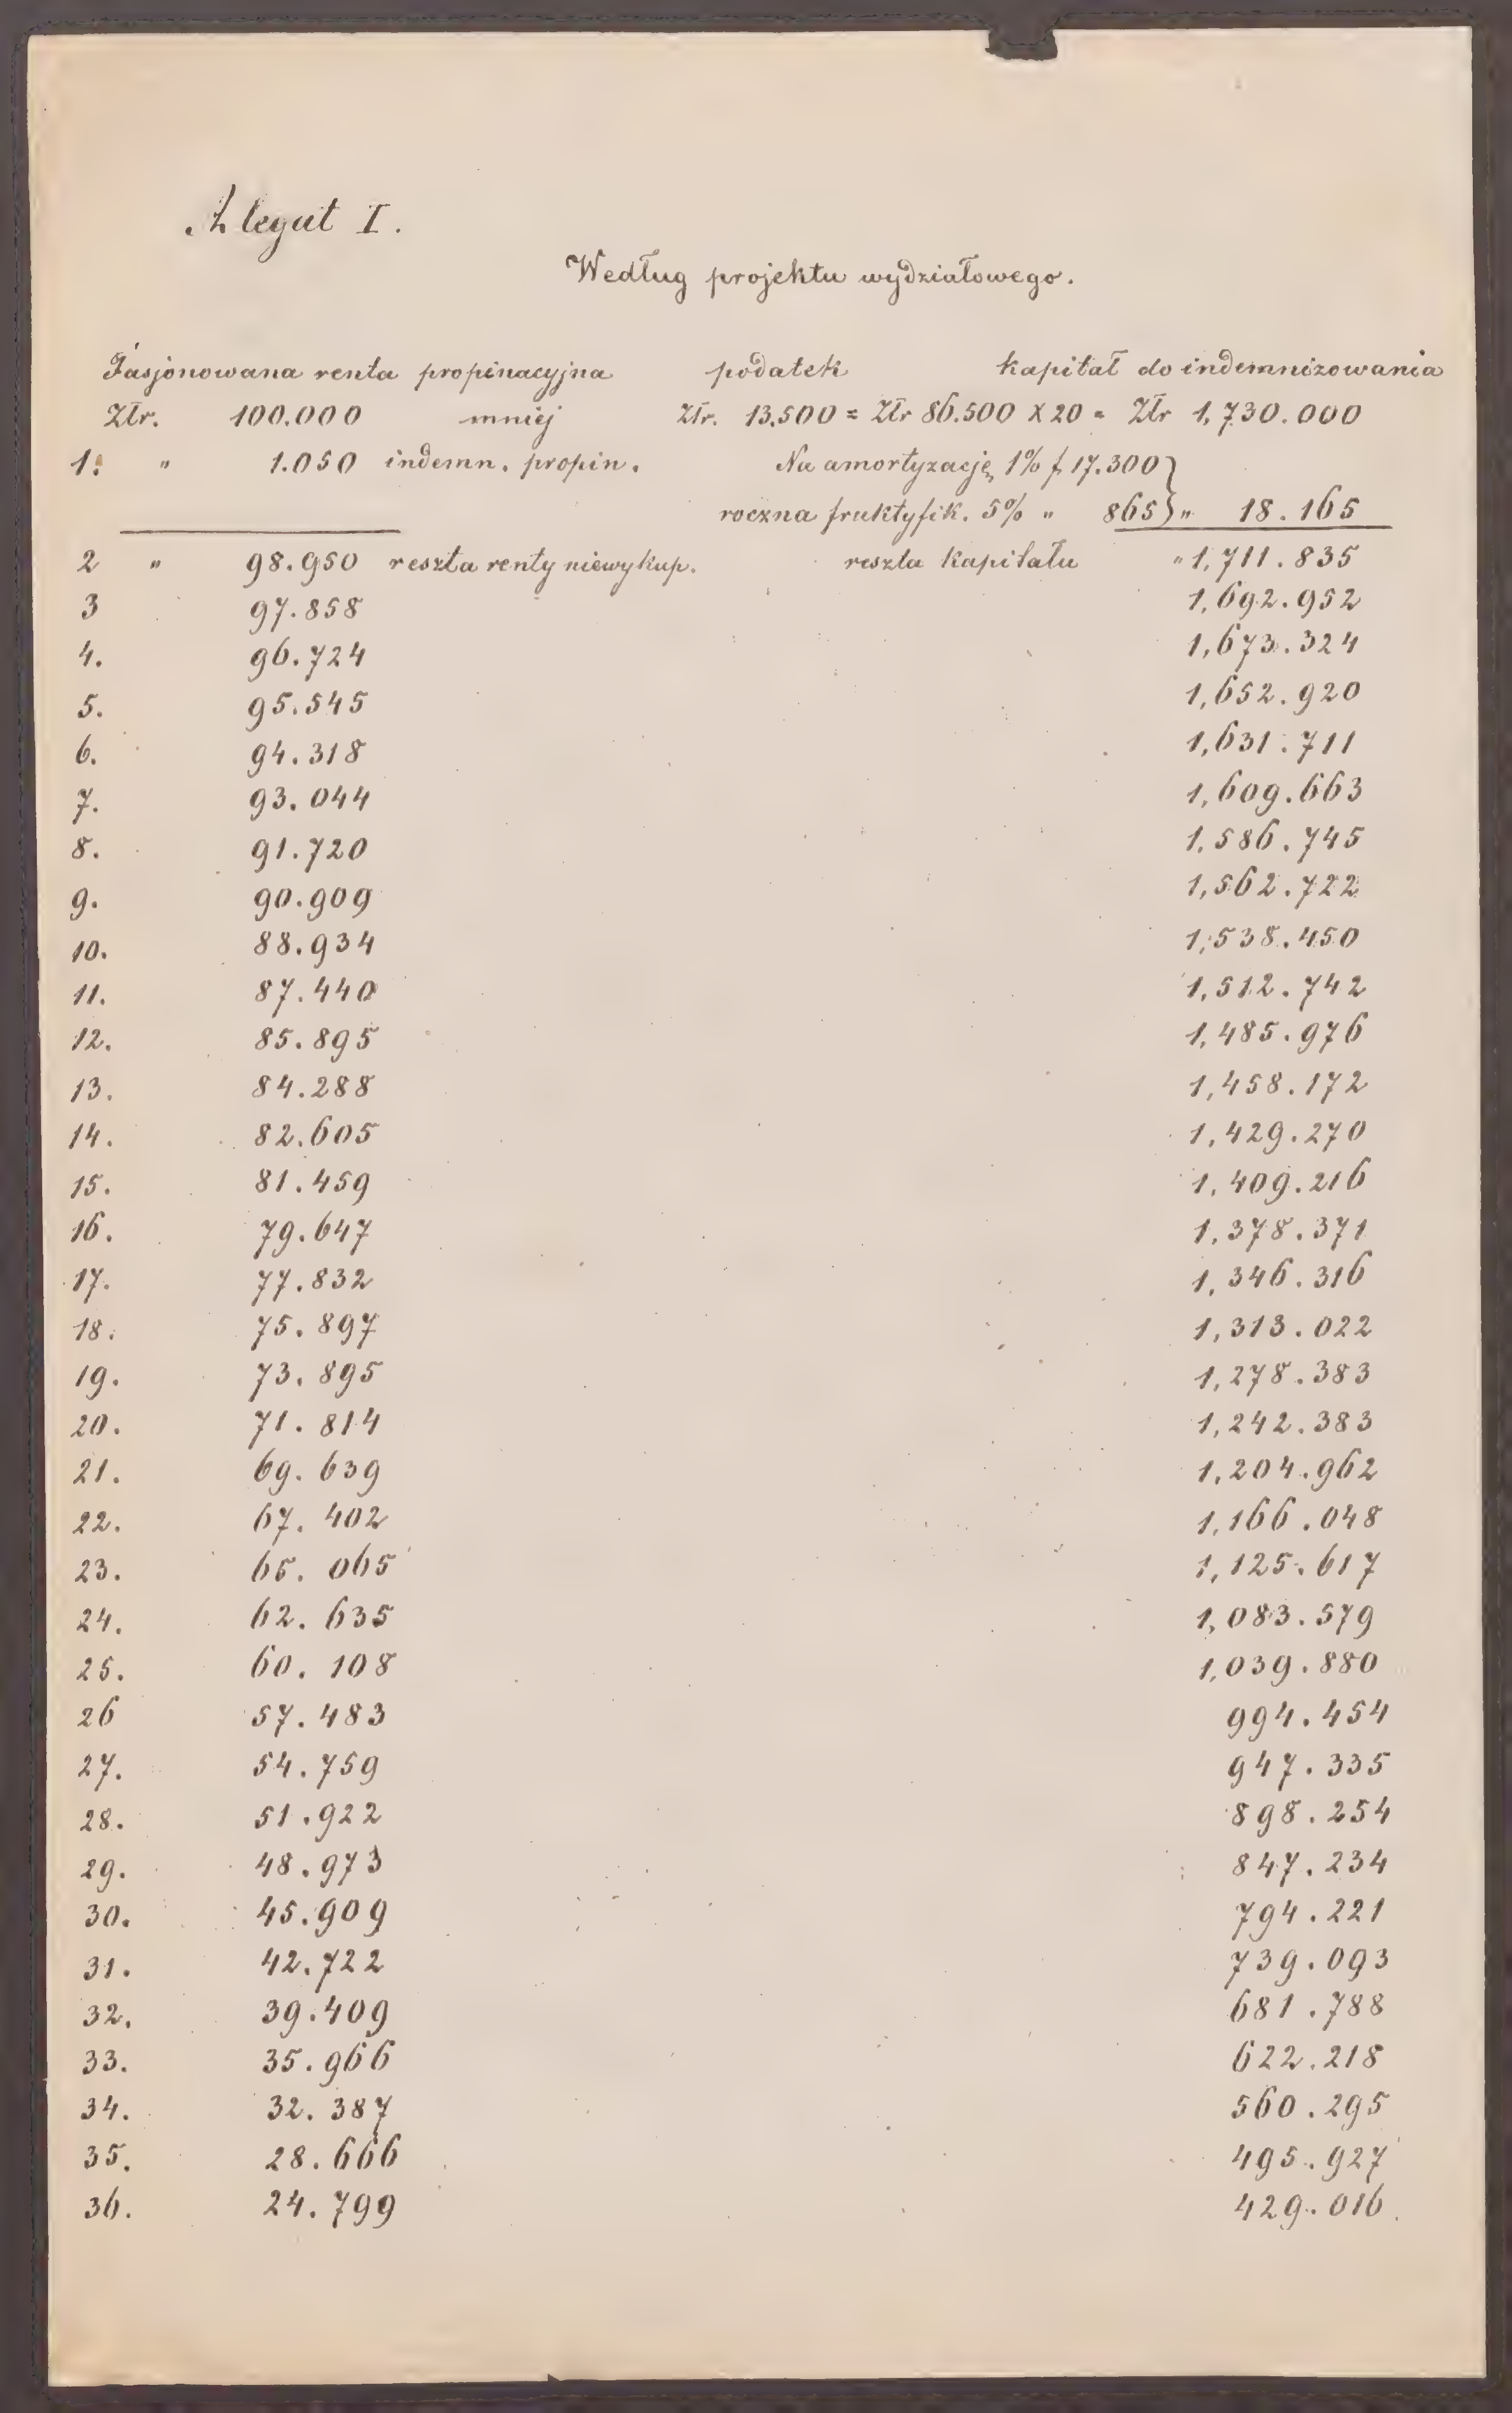 Alegat I.
Według projektu wydziałowego.
Fasjonowana renta propinacyjna podatek kapitał do indemnizowania
Złr. 100.000 mniej Złr. 13.500 = Złr 86.500 x 20 = Złr 1,730.000
1. " 1.050 indemn. propin. Na amortyzację 1% f 17.300 }
roczna fruktyfik. 5% " 865 } " 18.165
2 " 98.950 reszta renty niewykup. reszta kapitału " 1,711.835
3 97.858 1,692.952
4. 96.724 1,673.324
5. 95.545 1,652.920
6. 94.318 1,631.711
7. 93.044 1,609.663
8. 91.720 1,586.745
9. 90.909 1,562.722
10. 88.934 1,538.450
11. 87.440 1,512.742
12. 85.895 1,485.976
13. 84.288 1,458.172
14. 82.605 1,429.270
15. 81.459 1,409.216
16. 79.647 1,378.371
17. 77.832 1,346.316
18. 75.897 1,313.022
19. 73.895 1,278.383
20. 71.814 1,242.383
21. 69.639 1,204.962
22. 67.402 1,166.048
23. 65.065 1,125.617
24. 62.635 1,083.579
25. 60.108 1,039.880
26 57.483 994.454
27. 54.759 947.335
28. 51.922 898.254
29. 48.973 847.234
30. 45.909 794.221
31. 42.722 739.093
32. 39.409 681.788
33. 35.966 622.218
34. 32.387 560.295
35. 28.666 495.927
36. 24.799 429.016